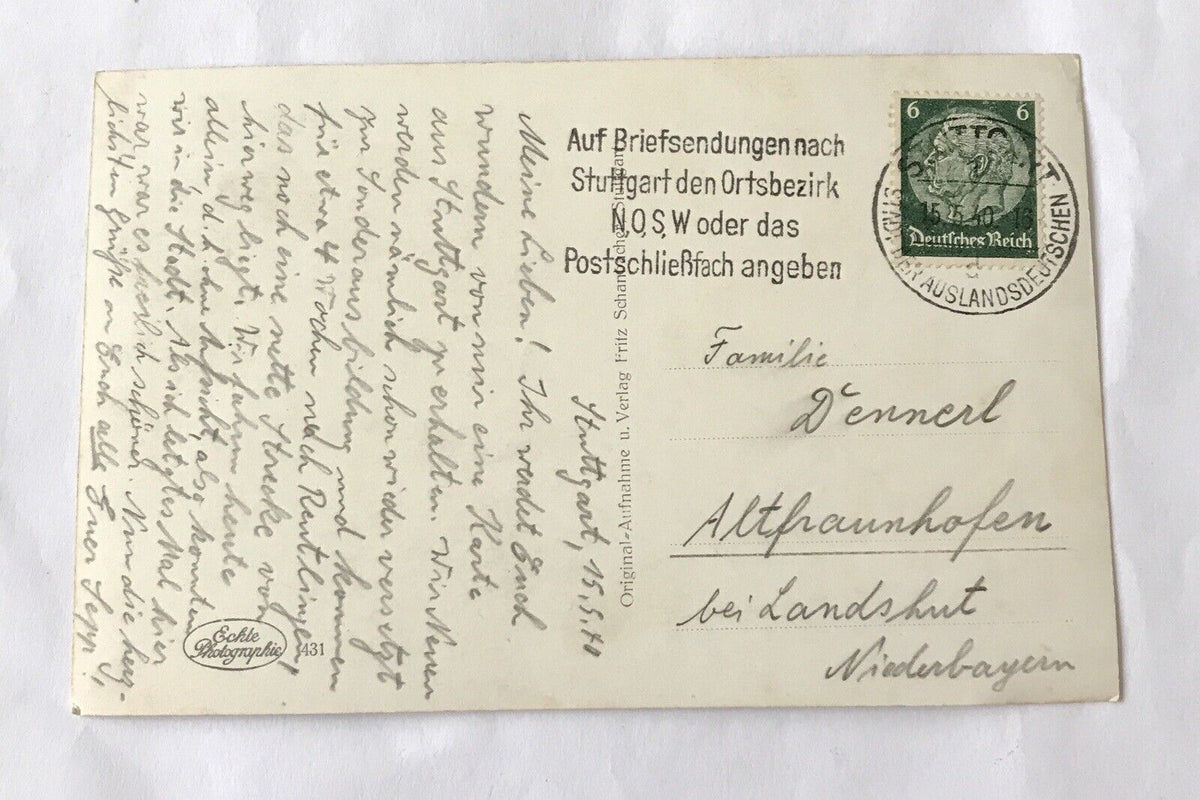 Stuttgart, 15.5.40
Meine Lieben! Ihr werdet Euch
wundern von mir eine Karte
aus Stuttgart zu erhalten. Wir
werden nämlich schon wieder versetzt
zur Sonderausbildung und kommen
für etwa 4 Wochen nach Reutlingen,
das noch eine nette Strecke von
hier weg liegt. Wir fuhren heute
allein, d. h. ohne Aufsicht, also konnten
wir in die Stadt. Als ich letztes Mal hier
war, war es schöner. Nun die herz-
lichsten Grüße an Euch alle Euer Sepp!
Echte
Photographie
431
Original-Aufnahme u. Verlag Fritz Stuttgart
Auf Briefsendungen nach
Stuttgart den Ortsbezirk
N,O,S,W oder das
Postschließfach angeben
6 6
Deutsches Reich
STUTTGART
15.5.40-16
STADT DER AUSLANDSDEUTSCHEN
Familie
Dennerl
Altfraunhofen
bei Landshut
Niederbayern